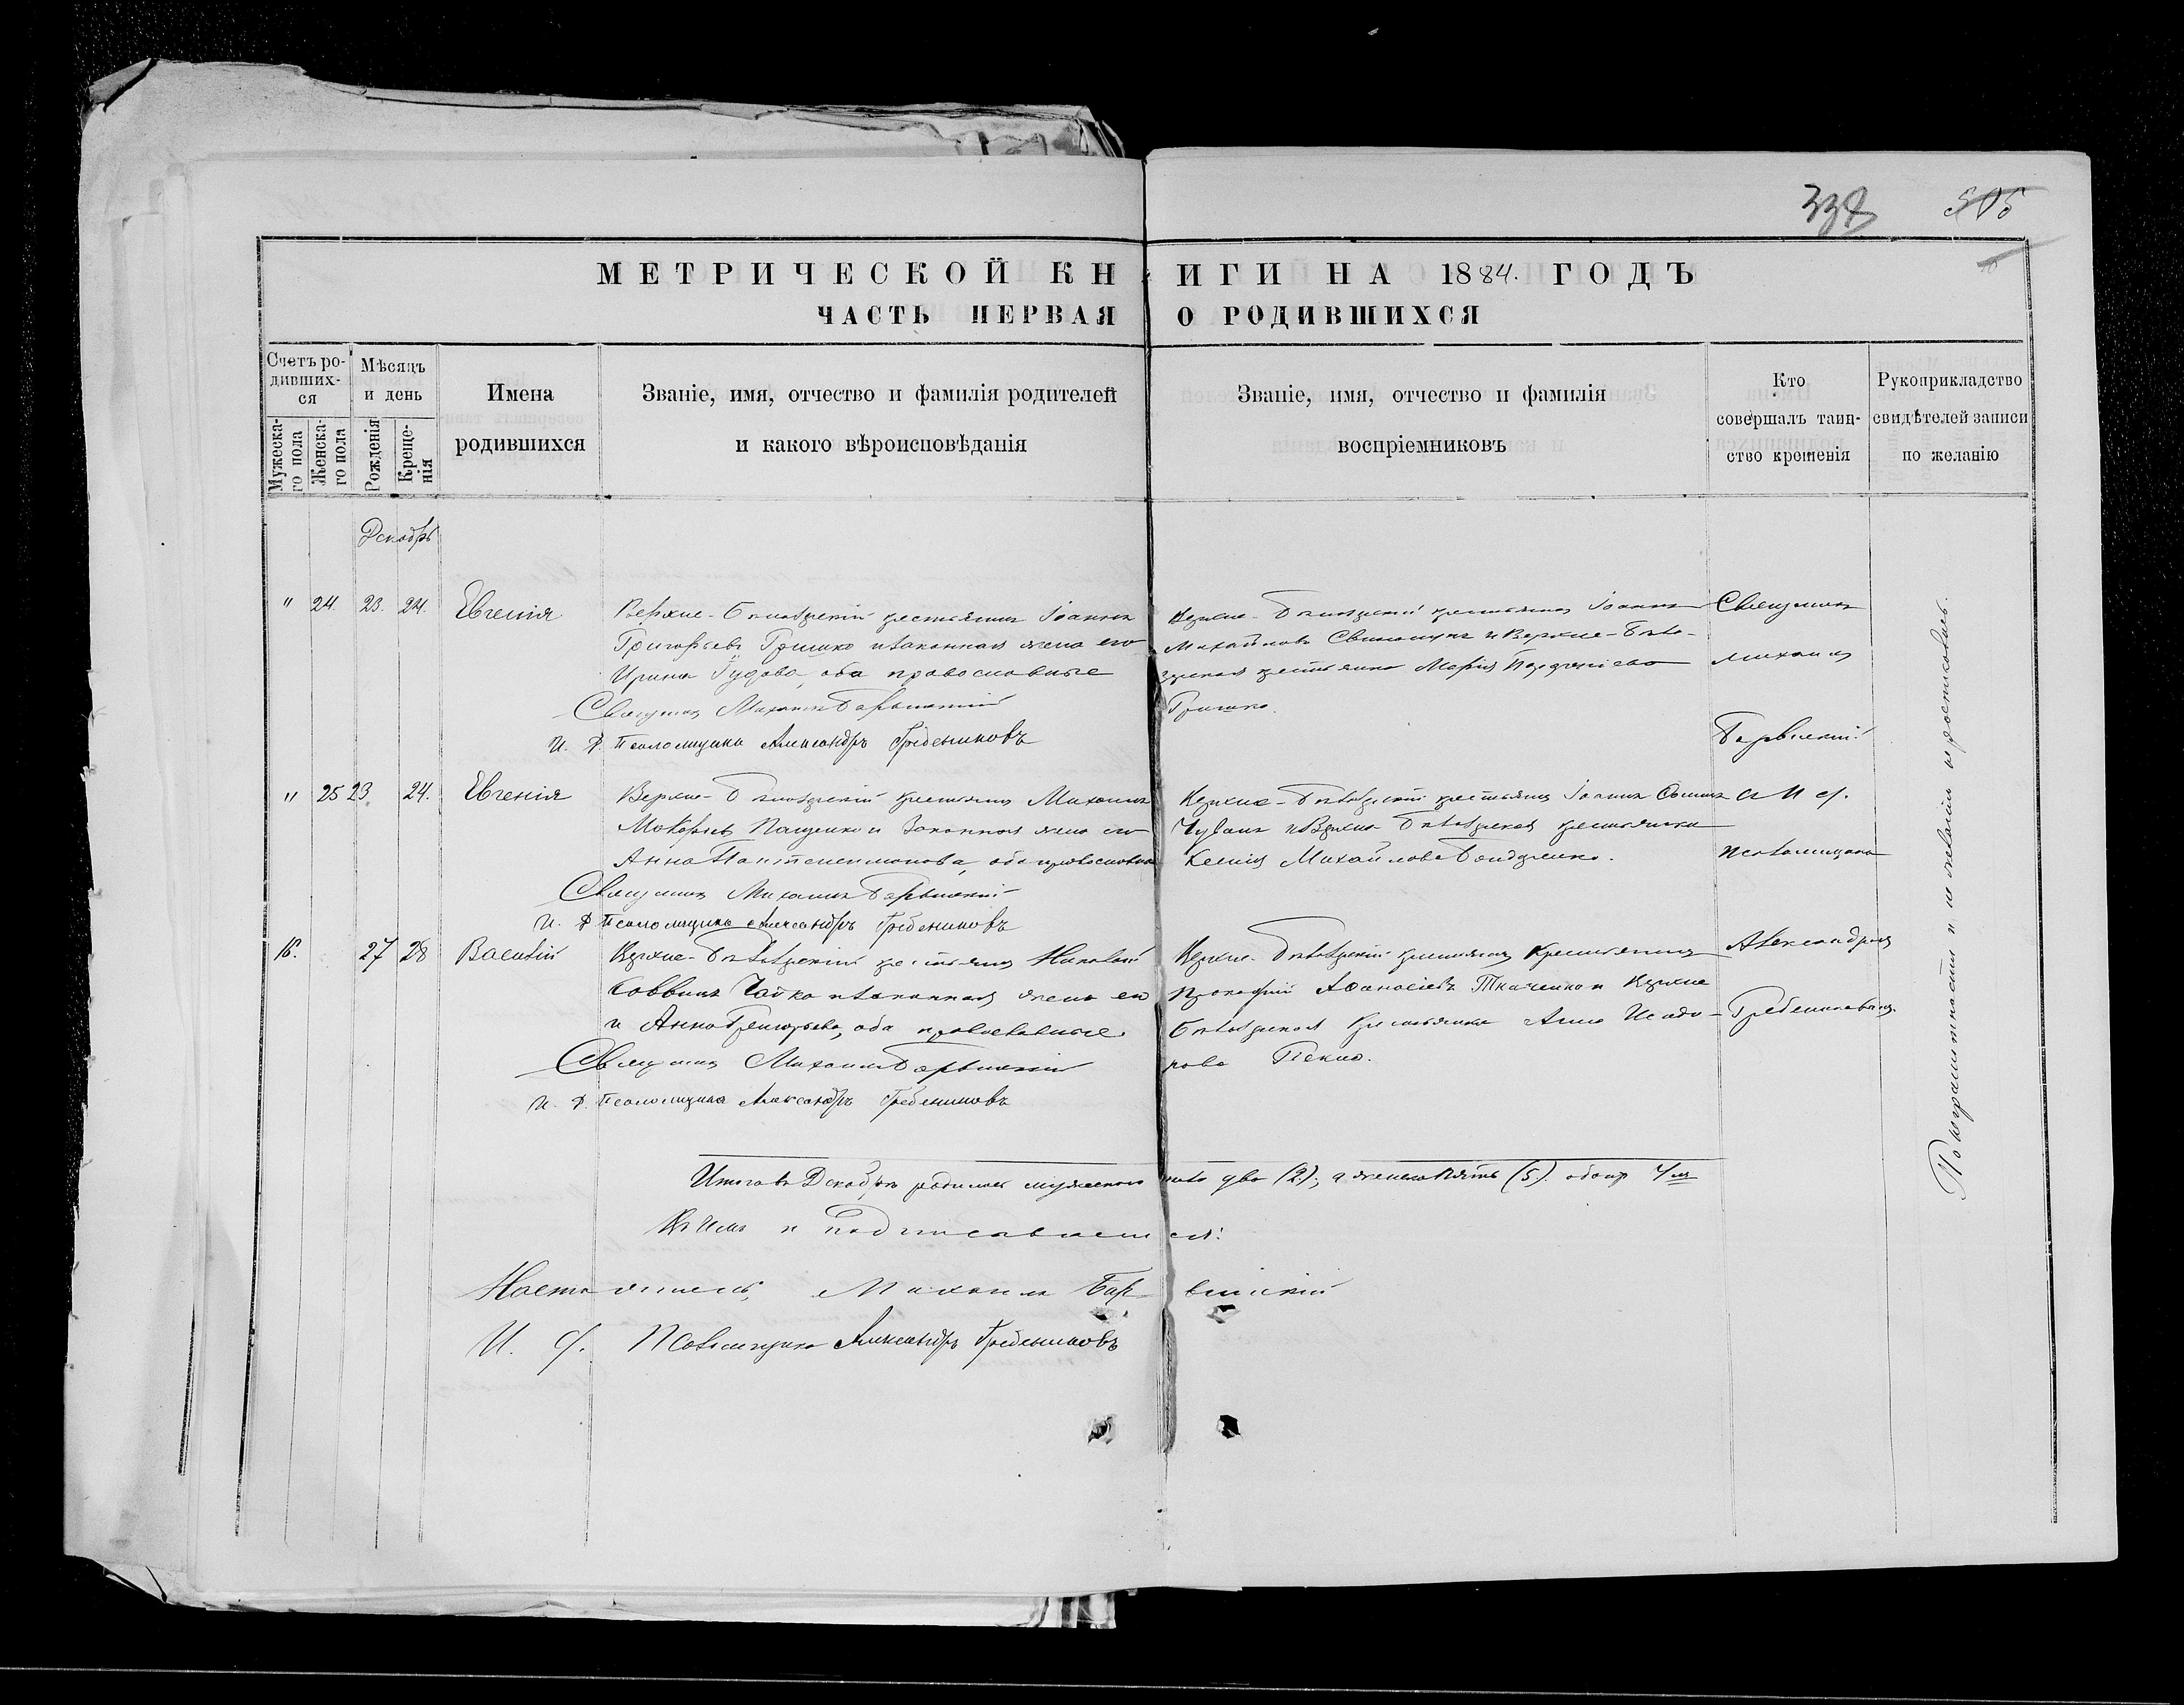 338 505
МЕТРИЧЕСКОЙ КНИГИ НА 1884. ГОДЪ
ЧАСТЬ ПЕРВАЯ О РОДИВШИХСЯ
Счетъ ро-
дивших-
ся
Мужеска-
го пола
Женска-
го пола
Мѣсяцъ
и день
Рожденія
Креще-
нія
Имена
родившихся
Званіе, имя, отчество и фамилія родителей
и какого вѣроисповѣданія
Званіе, имя, отчество и фамилія
воспріемниковъ
Кто
совершалъ таин-
ство крещенія
Рукоприкладство
свидѣтелей записи
по желанію
Декабрь
" 24. 23. 24. Евгенія
Верхне-Бѣлозерскій крестьянинъ Іоаннъ
Григорьевъ Гришко и законная жена его
Ирина Гудова, оба православные
Священникъ Михаилъ Барвинскій
И. Д. Псаломщика Александръ Гребениковъ
Верхне-Бѣлозерскій крестьянинъ Іоаннъ
Михайловъ и Верхне-Бѣло-
зерская крестьянка Марія
Гришко.
Священникъ
Михаилъ
Барвинскій
" 25 23. 24. Евгенія
Верхне-Бѣлозерскій крестьянинъ Михаилъ
Макарьевъ Пащенко и законная жена его
Анна Пантелеимонова, оба православные
Священникъ Михаилъ Барвинскій
И. Д. Псаломщика Александръ Гребениковъ
Верхне-Бѣлозерскій крестьянинъ Іоаннъ
и Верхне-Бѣлозерская крестьянка
Ксенія Михайлова Бондаренко.
съ И. д.
псаломщика
16. 27 28 Василій
Верхне-Бѣлозерскій крестьянинъ Николай
Саввинъ Чайко и законная жена его
и Анна Григорьева, оба православные
Священникъ Михаилъ Барвинскій
И. Д. Псаломщика Александръ Гребениковъ
Верхне-Бѣлозерскій крестьянинъ крестьянинъ
Прокофій Аѳанасіевъ Ткаченко и Верхне
Бѣлозерская крестьянка Анна Исидо-
рова
Александромъ
Гребениковымъ.
Итого въ Декабрѣ родилось мужескаго пола два (2.); а женска пять (5.) обоего 7м
Въ чемъ и подписываемся:
Настоятель, Михаилъ Барвинскій
И. д. Псаломщика Александръ Гребениковъ
По неграмотности и нежеланію не росписались.